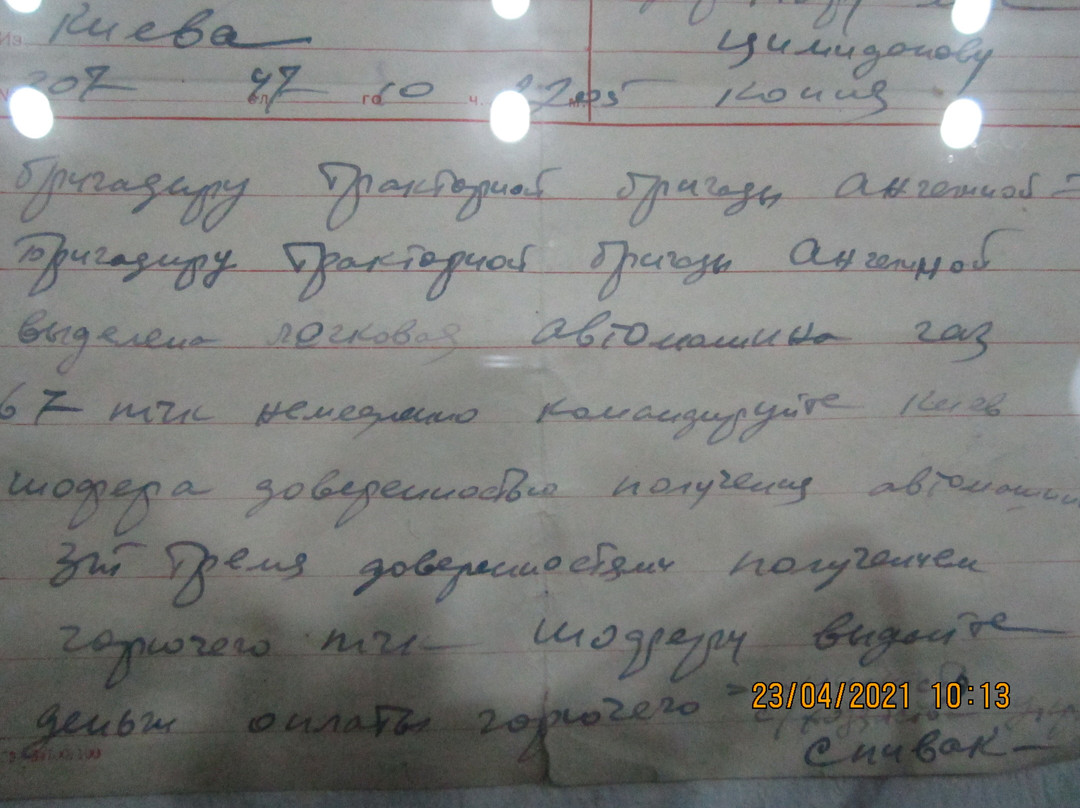 Из Киева
Цимидонову
207 47 10 копия
Бригадиру тракторной бригады Ангениной =
Бригадиру тракторной бригады Ангениной
выделена легковая автомашина газ
67 тчк немедленно командируйте Киев
шофера доверенностью получения
зпт тремя доверенностями получением
горючего тчк шоферу выдайте
деньги оплаты горючего =
23/04/2021 10:13
Спивак -